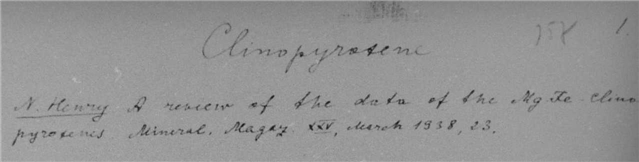 Clinopyroxene 1.
N. Henry A review of the data of the Mg Fe clino
pyroxenes. Mineral. Magaz. XXV, March 1938, 23.